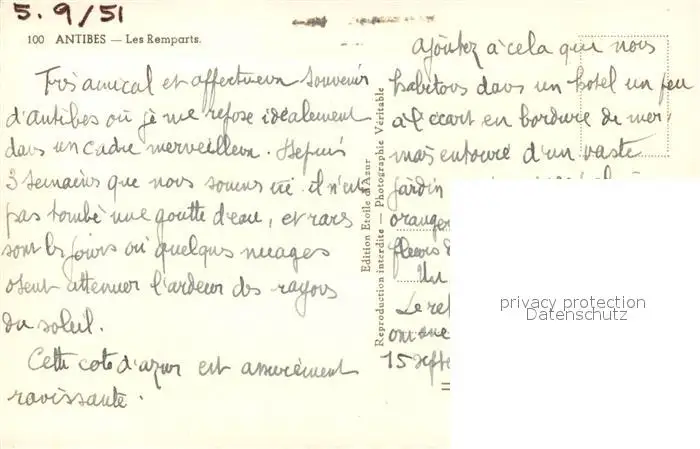 5.9/51
100 ANTIBES — Les Remparts.
Très amical et affectueux souvenir
d'antibes où je me repose idéalement
dans un cadre merveilleux. Depuis
3 semaines que nous sommes ici il n'est
pas tombé une goutte d'eau, et rares
sont les jours où quelques nuages
osent attenuer l'ardeur des rayons
du soleil.
Cette cote d'azur est assurément
ravissante.
Edition Etoile d'Azur
Reproduction interdite — Photographie Véritable
ajoutez à cela que nous
habitons dans un hotel un peu
à l'écart en bordure de mer,
mais entouré d'un vaste
jardin
oranger
fleurs
Un
Le
15 septe
privacy protection
Datenschutz